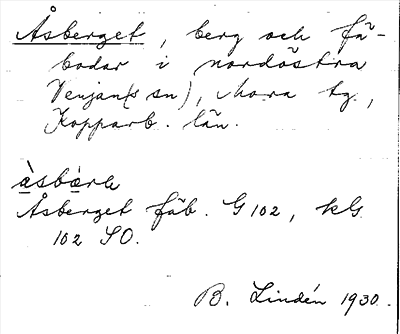 Åsberget, berg och fä-
bodar i nordöstra
Venjan(s sn), Mora tg.,
Kopparb. län.
Åsberget fäb. G 102, kG
102 SO.
B. Lindén 1930.